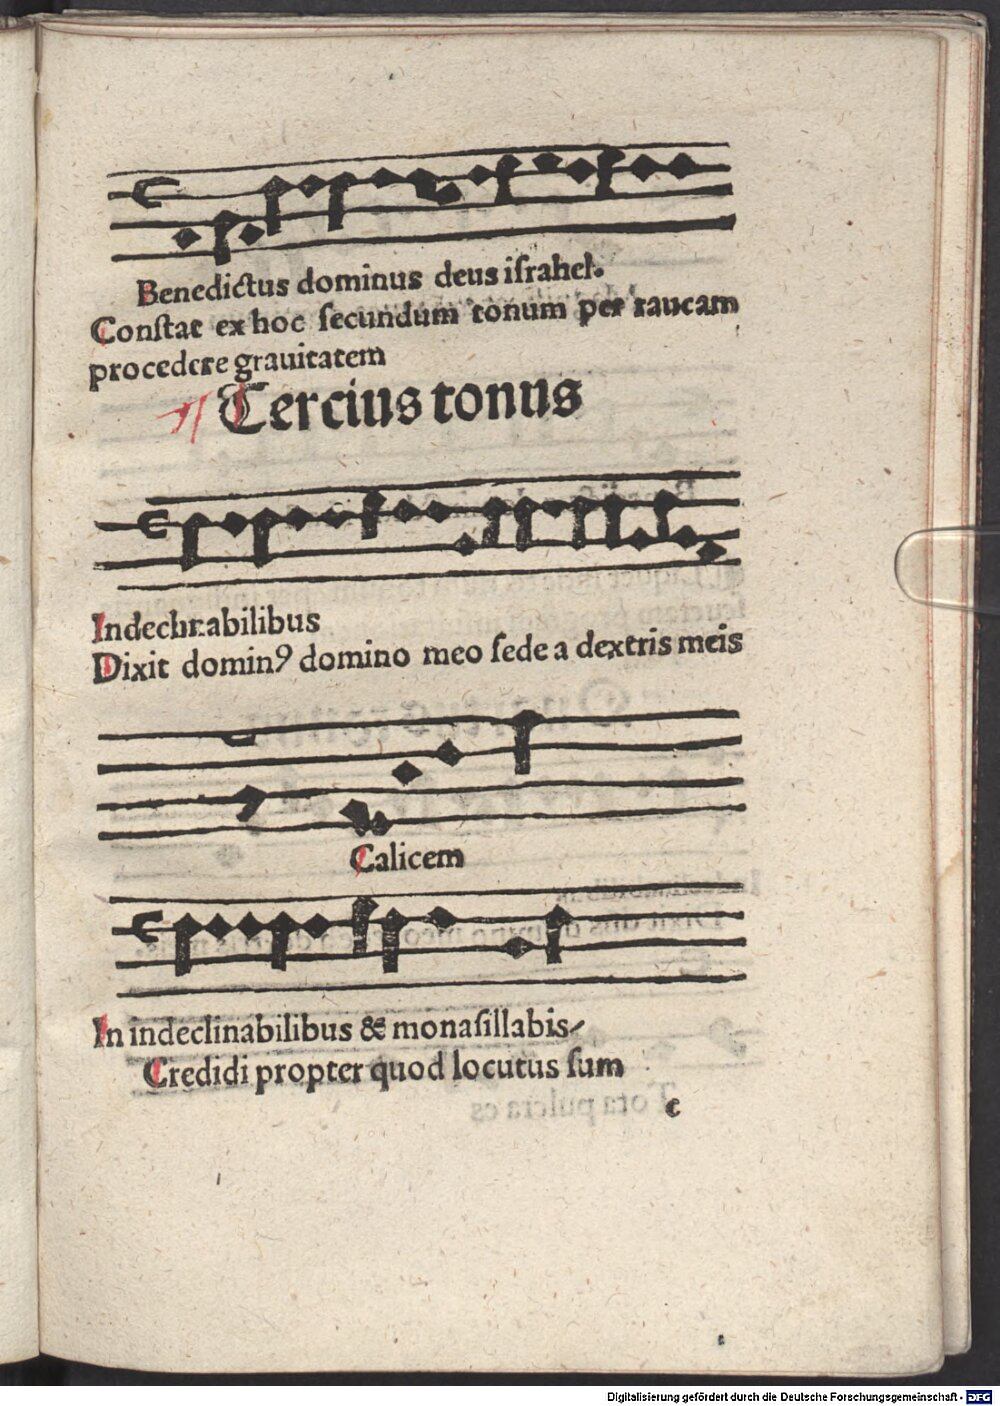 Benedictus dominus deus iſrahel.
Conſtat ex hoc ſecundum tonum per raucam
procedere grauitatem
Tercius tonus
Indeclinabilibus
Dixit dominꝰ domino meo ſede a dextris meis
Calicem
In indeclinabilibus & monaſillabis
Credidi propter quod locutus ſum
c
Digitalisierung gefördert durch die Deutsche Forschungsgemeinschaft - DFG